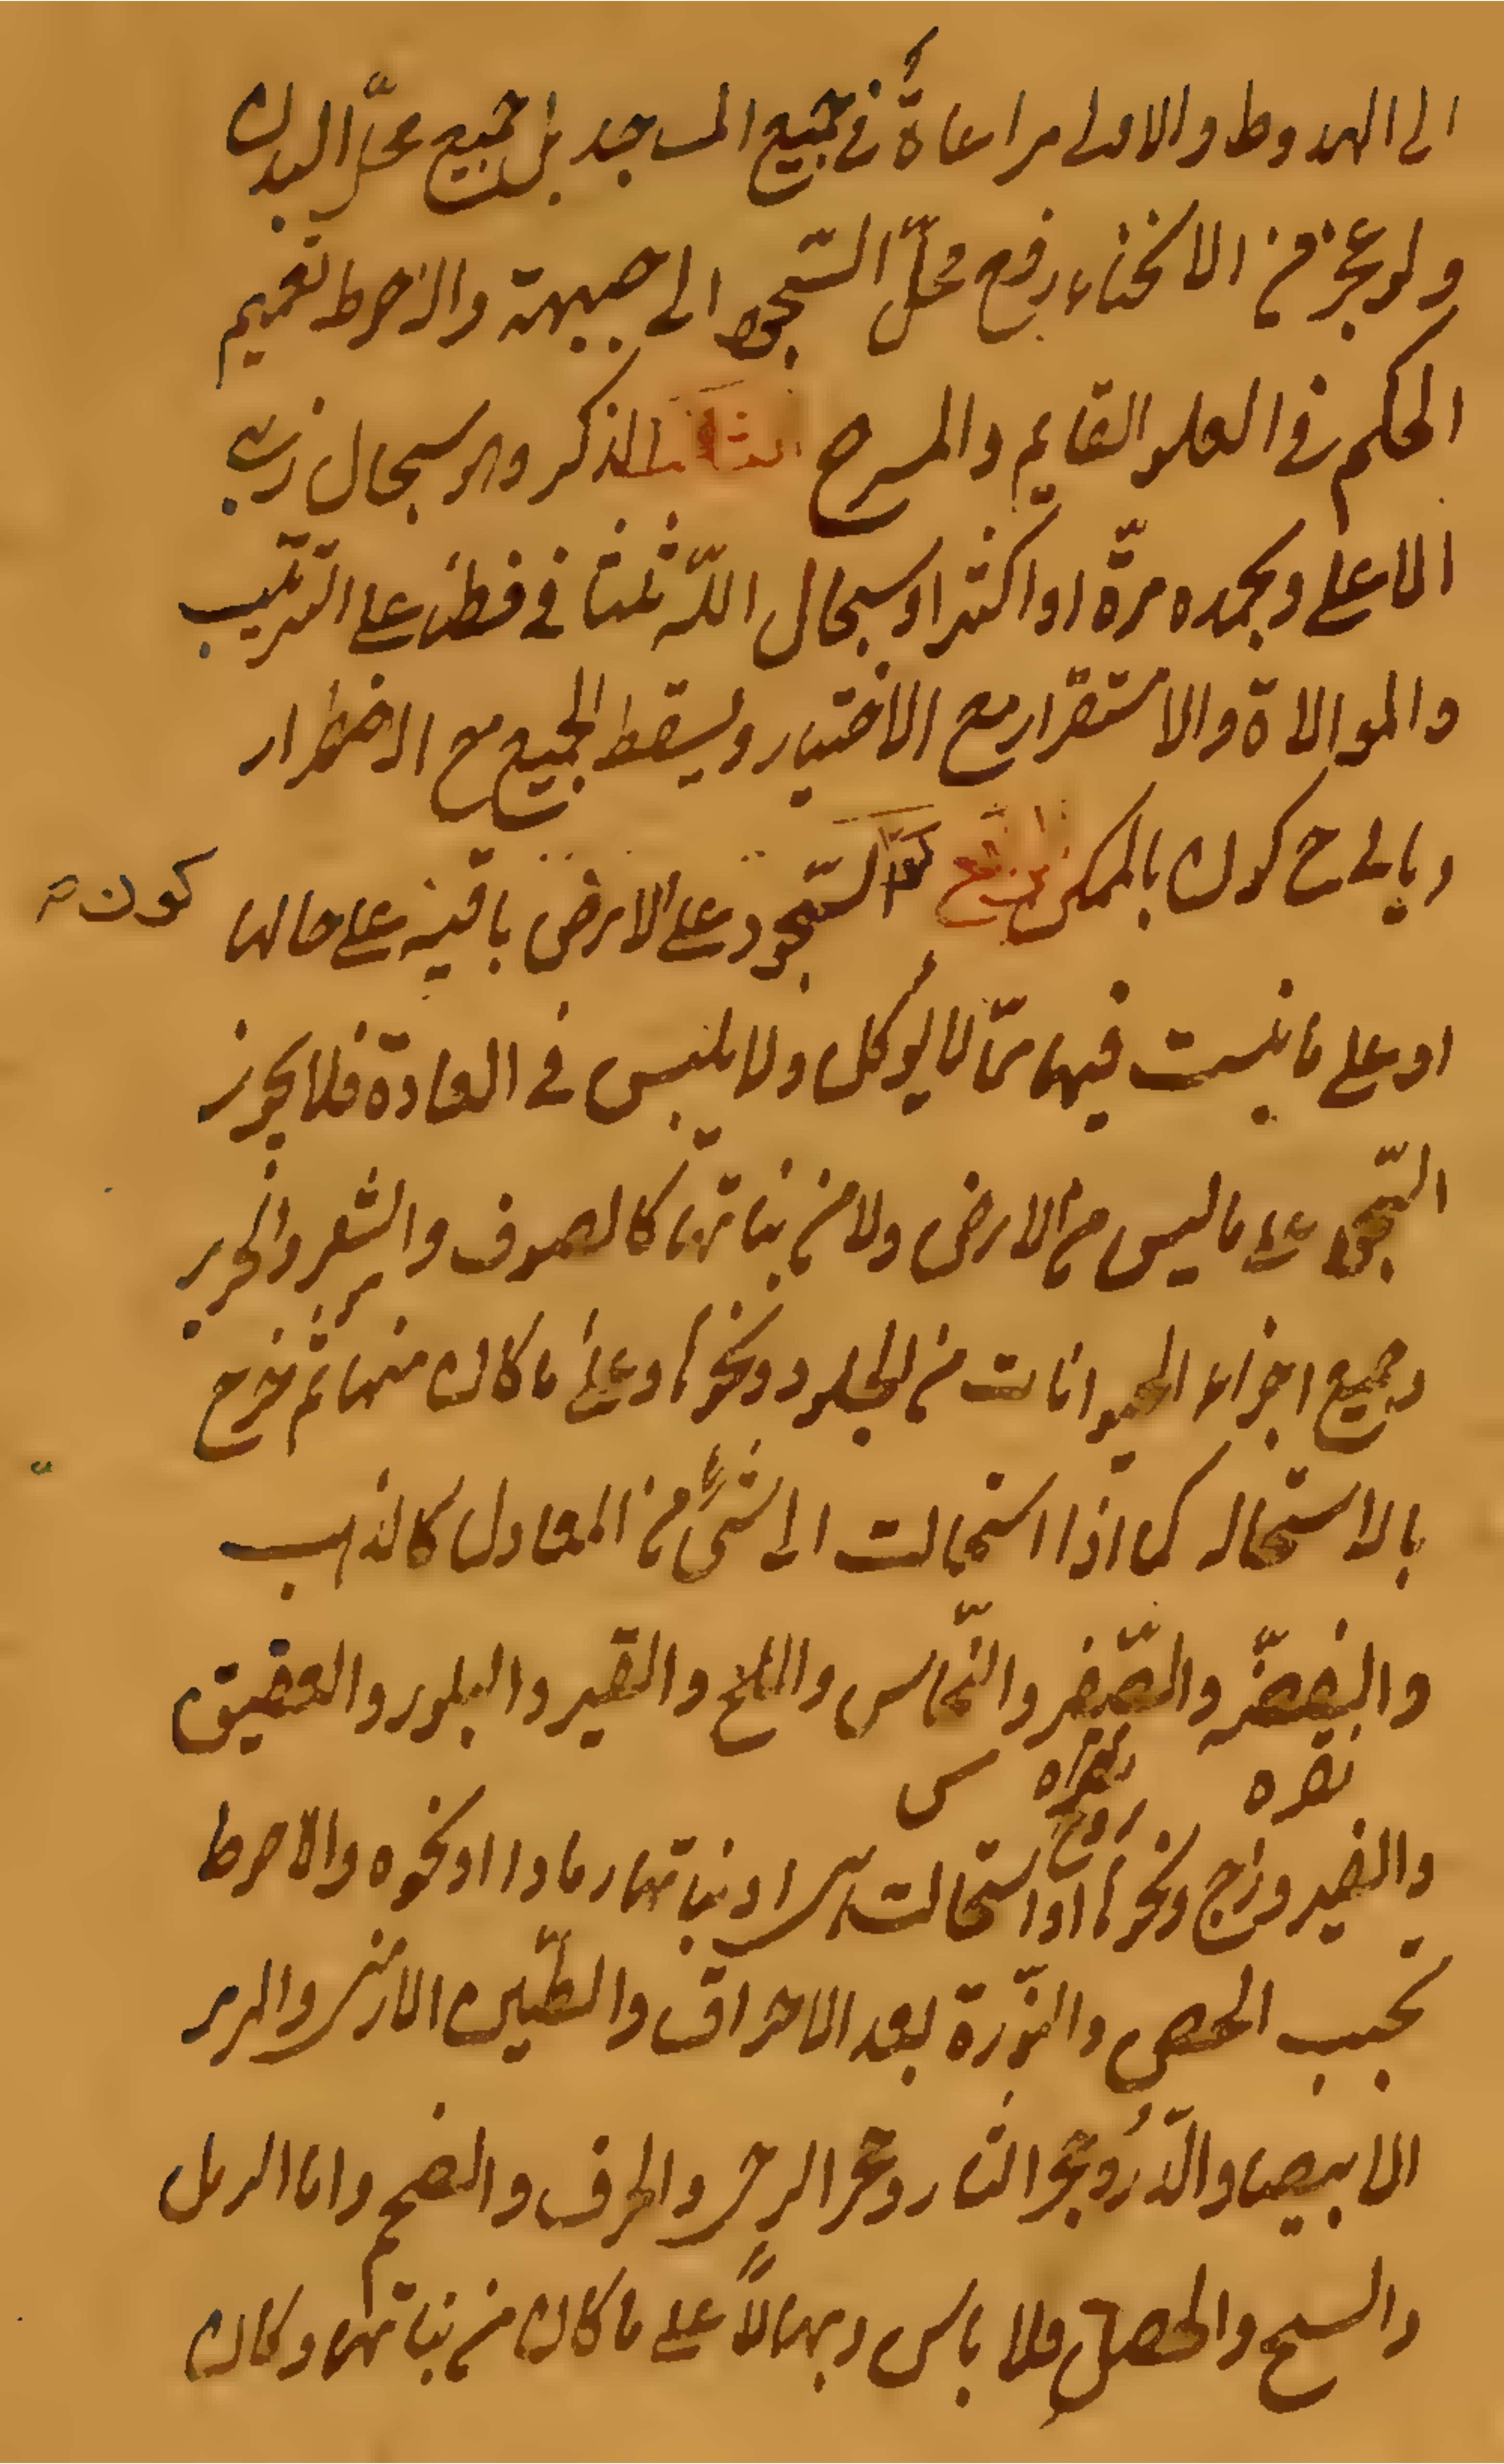 الى الهبوط والاولى مراعاةً في جميع المساجد بل جميع محلّ البدن
ولو عجز من الانحناء رفع محلّ السّجود الى جبهته والاحوط تعميم
الحكم في العلو القايم والمسرح الثالث الذكر وهو سبحان ربي
الاعلى وبحمده مرّة او اكثر او سبحان اللّه ثلثا في فطن على الترتيب
والموالاة والاستقرار مع الاختيار ويسقط الجميع مع الاضطرار
وياتى ح كون بالممكن الرابع السّجود على الارض باقية على حالها
كون
او على ما ينبت فيها ممّا لا يوكل ولا يلبس في العادة فلا يجوز
السّجود على ما ليس من الارض ولا من نباتها كالصوف والشعر والحرير
وجميع اجزاء الحيوانات من الجلود ونحوها وعلى ما كان منها ثم خرج
بالاستحاله كما اذا استحالت الى شئ من المعادن كالذهب
والفضّه والصّفر والنّحاس والملح والقير والبلور والعقيق
نقره
روح
س
والفيروزج ونحوها او استحالت او نباتها رمادا او نحوه والاحوط
تجنب الجص والنّورة بعد الاحراق والطّين الارمني والمرمر
الابيض والدّر وحجر النار وحجر الرحى والخزف والفحم واما الرمل
والسبخ والحصى فلا باس وبها لاً على ما كان من نباتها وكان